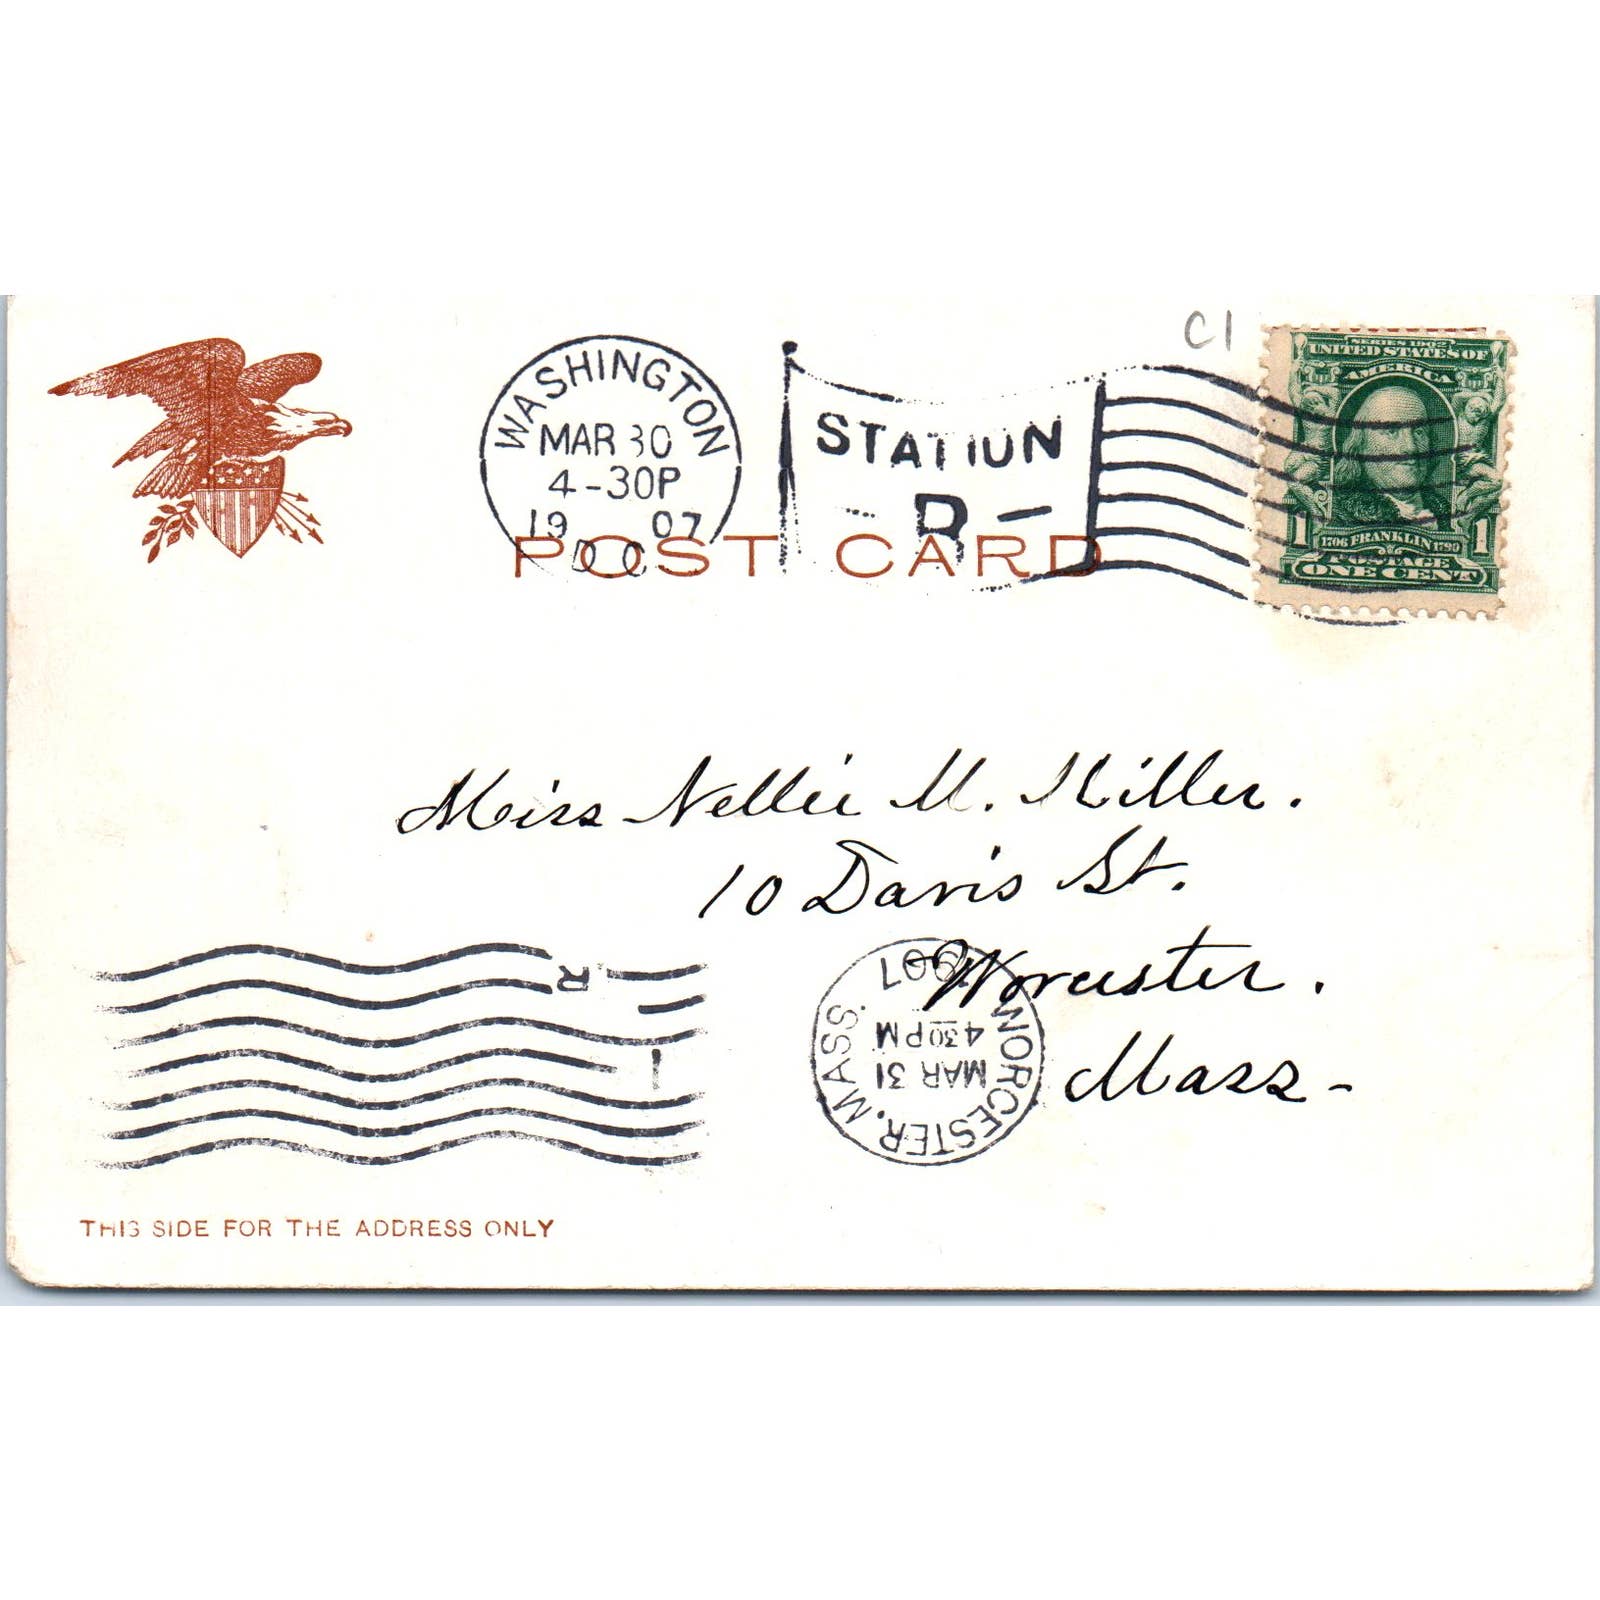 C1
WASHINGTON
MAR 30
4-30P
1907
D C
STATION
POST CARD
SERIES 1902
UNITED STATES OF
AMERICA
1 1
1706 FRANKLIN 1790
POSTAGE
ONE CENT
Miss Nellie M. Miller.
10 Davis St.
Worcester.
Mass-
WORCESTER, MASS.
MAR 31
430 PM
1907
R
THIS SIDE FOR THE ADDRESS ONLY